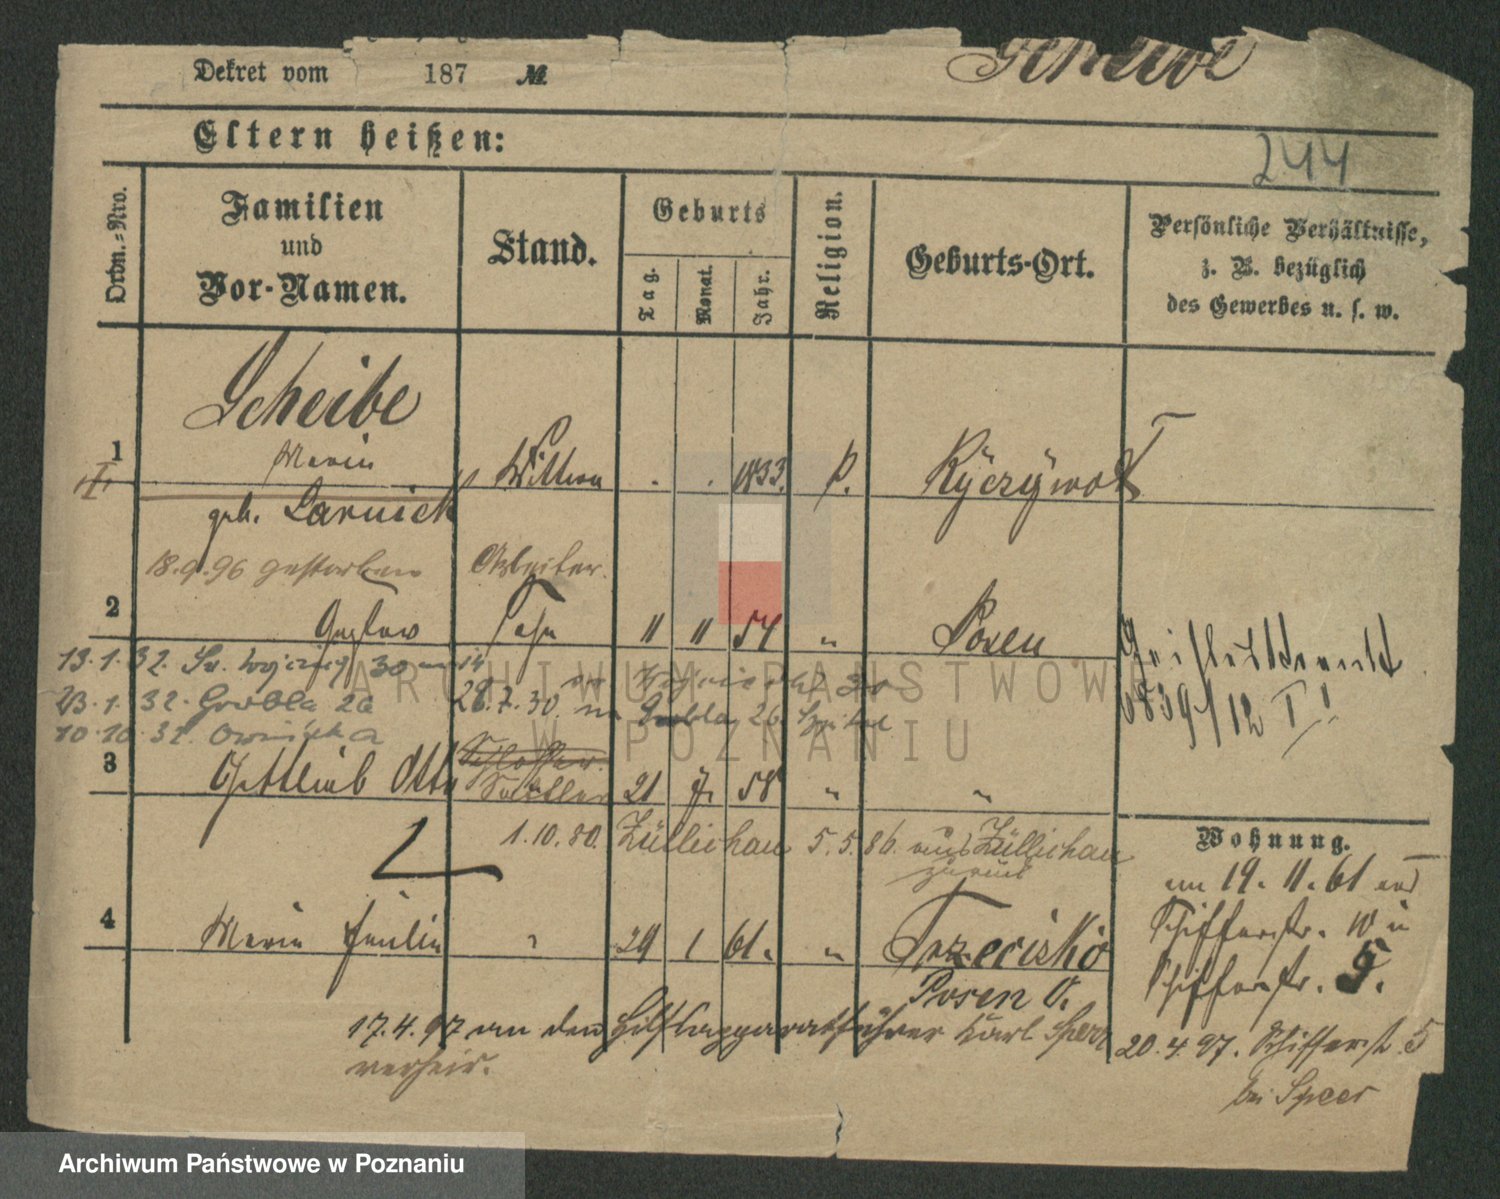 Scheibe
Dekret vom 187 №
Eltern heißen:
244
Ordn.=Nro.
Familien
und
Vor-Namen.
Stand.
Geburts
Tag.
Monat.
Jahr.
Religion.
Geburts-Ort.
Persönliche Verhältnisse,
z. B. bezüglich
des Gewerbes u. s. w.
Scheibe
1 Marie Wittwe . . 1833. Ryczywol
I
geb. Laruick
18.9.96 gestorben Arbeiter.
2 Gustav Sohn 11 11 54 " Posen
13.1.32. 30
23.1.32. Grobla 26 28.7.30. Grobla 26.
10.10.32.
6839/12 I
Schlosser.
3 Gottlieb Otto Sattler 21 7. 58 " "
1.10.80. Züllichau 5.5.86. aus Züllichau
zurück
Wohnung.
am 19. 11. 61 aus
Schifferstr. 10 in
Schifferstr. 5.
4 Marie Julie 29 1 61. " Trzecisko
Posen O.
17.4.97 an den Hilfs Karl Speer
verheir.
20.4.97. Schifferstr. 5
bei Speer
ARCHIWUM PAŃSTWOWE
W POZNANIU
Archiwum Państwowe w Poznaniu